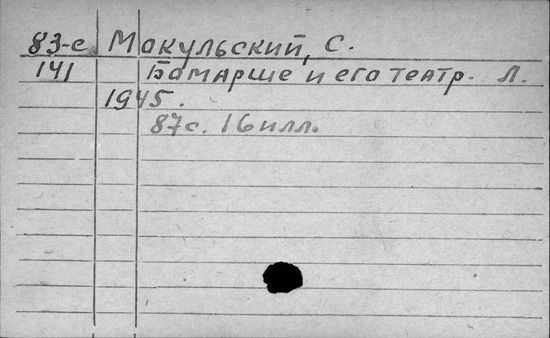 83-е Мокульский, С.
141 Бомарше и его театр. Л.
1945.
87с. 16 илл.